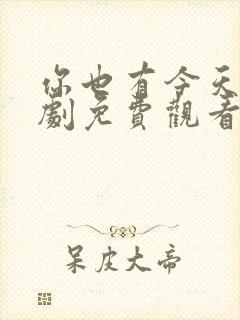 你也有今天
劇免費觀看
呆皮大帝